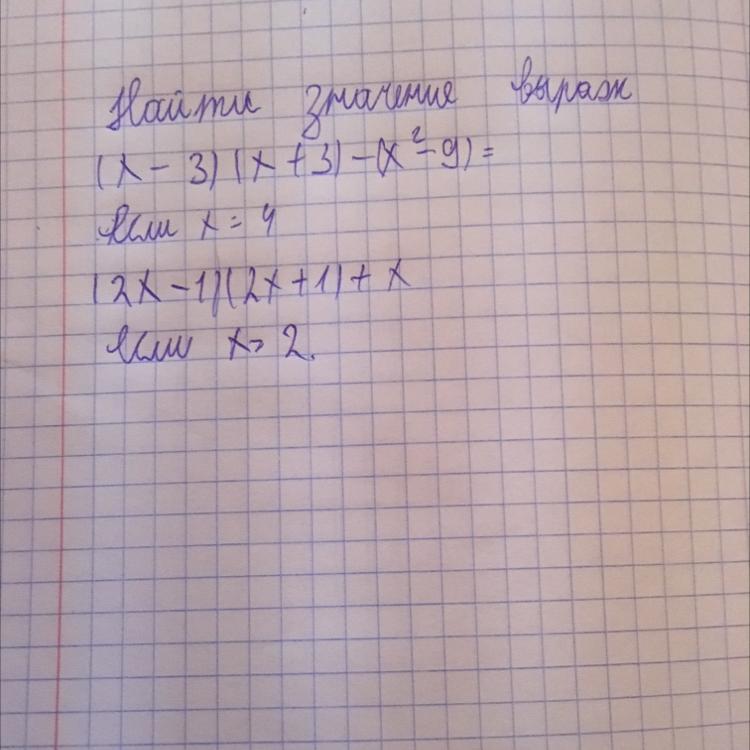 Найти значение выраж
(x - 3)(x + 3) - (x² - 9) =
если x = 4
(2x - 1)(2x + 1) + x
если x = 2.